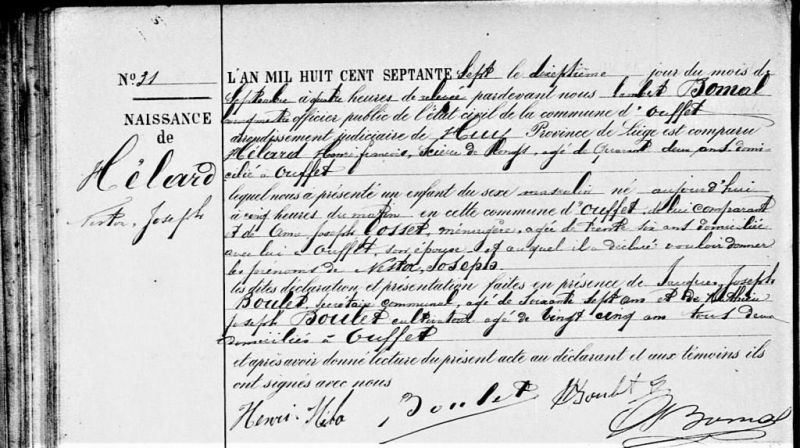 N.o 31
NAISSANCE
de
Hélard
Nestor, Joseph
L'AN MIL HUIT CENT SEPTANTE Sept le dixseptième jour du mois de
Septembre à quatre heures de relevée pardevant nous Lambert Bomal
officier public de l'état civil de la commune d' Ouffet
arrondissement judiciaire de Huy Province de Liège est comparu
Hélard Henri François, Scieur de longs, agé de Quarante deux ans domi-
cilié à Ouffet
lequel nous a présenté un enfant du sexe masculin né aujourd'hui
à cinq heures du matin en cette commune d' Ouffet, de lui comparant
et de Anne Joseph Cosset, ménagère, agée de trente six ans domiciliée
avec lui à Ouffet, son épouse et auquel il a déclaré vouloir donner
les prénoms de Nestor, Joseph
les dites déclaration et présentation faites en présence de Jacques, Joseph
Boulet, secrétaire communal, agé de Soixante sept ans et de
Joseph Boulet cultivateur agé de Vingt cinq ans tous deux
domiciliés à Ouffet
et après avoir donné lecture du présent acte au déclarant et aux témoins ils
ont signés avec nous
Henri Boulet Boulet Bomal